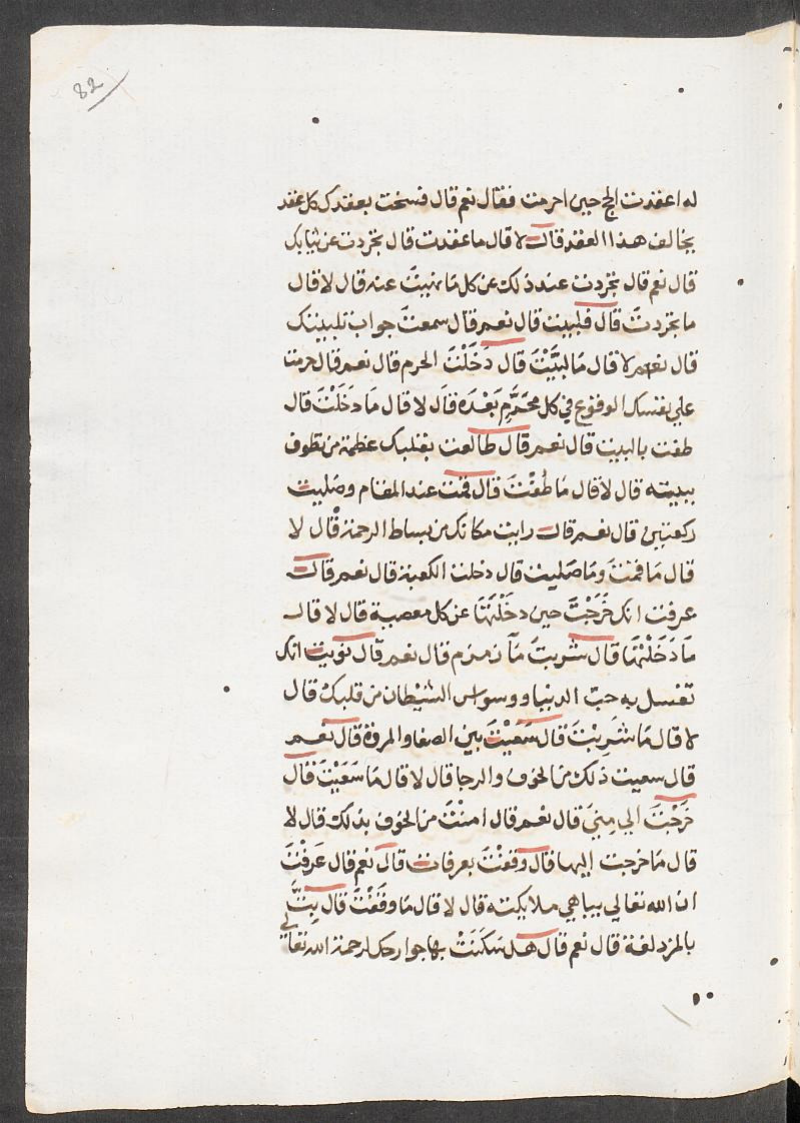 82
له اعقدت الحج حين احرمت فقال نعم قال فسخت بعقدك كل عقد
يخالف هذا العقد قال لا قال ما عقدت قال تجردت عن ثيابك
قال نعم قال تجردت عند ذلك عن كل ما نهيت عنه قال لا قال
ما تجردتَ قال فلبيت قال نعم قال سمعتَ جواب تلبيتك
قال نعم لا قال مَا لبيَّتَ قال دَخَلْتَ الحرم قال نعم قال حرمت
علي نفسك الوقوع في كل محَّرمٍ بَعْدَه قال لا قال مَا دَخَلْتَ قال
طفت بالبيت قال نعم قال طالعت بقلبك عظمة من تطوف
ببيته قال لا قال مَا طُفْتَ قال قمت عند المقام وصليت
ركعتين قال نعم قال رايت مكانك من بساط الرحمة قال لا
قال مَا قمْتَ ومَا صَليت قال دخلت الكعبة قال نعم قال
عرفت انك خَرَجْتَ حين دخَلْتهَا عن كل معصية قال لا قال
مَا دَخَلْتهَا قال شربتَ مآ زمزم قال نعم قال نويت انك
تغسل به حبّ الدنيا ووسواس الشيْطان من قلبك قال
لا قال مَا شَرِبْتَ قال سَعَيْتَ بين الصفا والمروة قال نعم
قال سعيت ذلك من الخوف والرجا قال لا قال مَا سَعَيْتَ قال
خَرَجْتَ الي مِنيَ قال نعم قال امنْتَ من الخوف بذلك قال لا
قال مَا خرجت اليها قال وقفْتَ بعرفات قال نعم قال عَرفْتَ
ان الله تعالي يباهي ملايكته قال لا قال مَا وقَفْتَ قال بِتَّ
بالمزدلفة قال نعم قال هل سَكَنَتْ بها جوارحك لرحمة الله تعالي